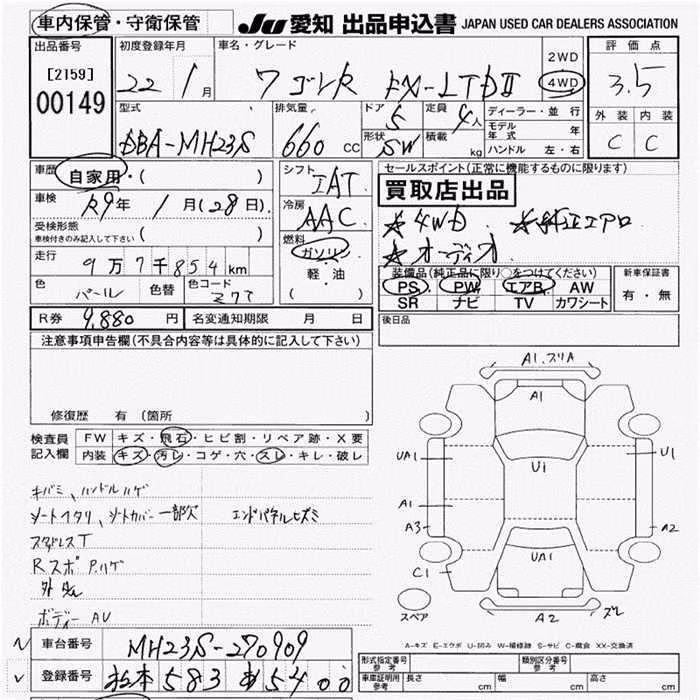 車内保管・守衛保管 JU 愛知 出品申込書 JAPAN USED CAR DEALERS ASSOCIATION
出品番号 初度登録年月 車名・グレード 評価点
[2159] 22年 1月 ワゴンR FX-LTDⅡ 2WD 4WD 3.5
00149
型式 排気量 ドア 定員 ディーラー・並行 外装 内装
DBA-MH23S 660 CC 5 4人 モデル年式 年 C C
形状 SW 積載 kg ハンドル 左・右
車歴 自家用・( ) シフト IAT セールスポイント(正常に機能するものに限ります)
車検 R9年 1月(28日) 冷房 AAC 買取店出品
受検形態 ( ) ☆4WD ☆純正エアロ
車検付きのみ記入して下さい 燃料 ☆オーディオ
走行 9万7千854km ガソリン・軽油 ( )
装備品(純正品に限り○をつけてください) 新車保証書
色 パール 色替 色コード Z7T PS PW エアB AW 有・無
SR ナビ TV カワシート
R券 9,880円 名変通知期限 月 日 後日品
注意事項申告欄(不具合内容等は具体的に記入して下さい)
修復歴 有(箇所
検査員記入欄 FW キズ・飛石・ヒビ割・リペア跡・X要
内装 キズ・汚レ・コゲ・穴・スレ・キレ・破レ
キバミ、ハンドルハゲ
シートヘタリ、シートカバー一部欠 エンドパネルヒズミ
スタッドレスT
Rスポ P.ハゲ
ボディー AU
A1.スリA
A1
UA1 U1 U1
A1
A3 A2
UA1
C1
A2 ズレ
スペア
A-キズ E-エクボ U-凹み W-補修跡 S-サビ C-腐食 XX-交換済
車台番号 MH23S-270909
登録番号 松本 583
形式指定番号 参考 類別区分番号 参考
車庫証明用 参考 長さ cm 幅 cm 高さ cm